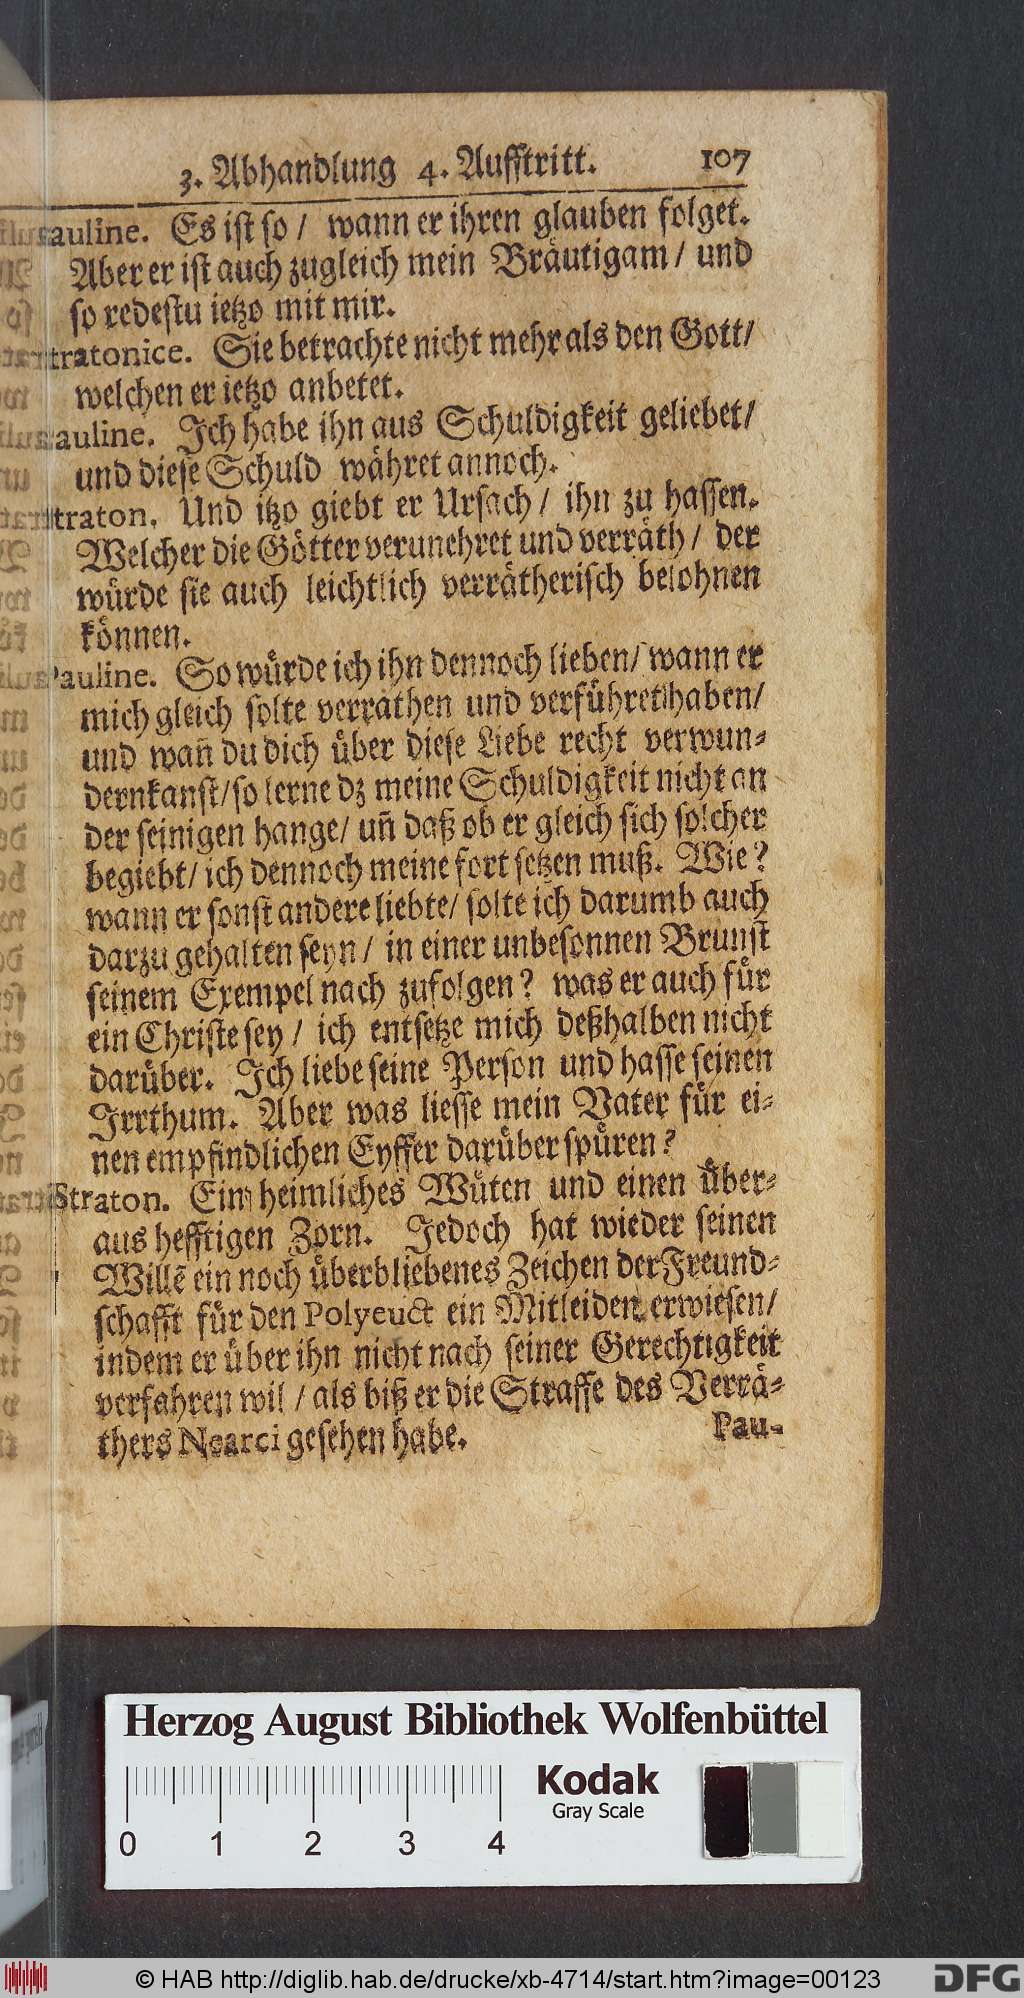 3. Abhandlung 4. Aufftritt. 107
auline. Es ist so / wann er ihren glauben folget.
Aber er ist auch zugleich mein Bräutigam / und
so redestu ietzo mit mir.
tratonice. Sie betrachte nicht mehr als den Gott/
welchen er ietzo anbetet.
auline. Ich habe ihn aus Schuldigkeit geliebet/
und diese Schuld währet annoch.
straton. Und itzo giebt er Ursach / ihn zu hassen.
Welcher die Götter verunehret und verräth / der
würde sie auch leichtlich verrätherisch belohnen
können.
Pauline. So würde ich ihn dennoch lieben/ wann er
mich gleich solte verrathen und verführet haben/
und wañ du dich über diese Liebe recht verwun-
dern kanst/ so lerne dz meine Schuldigkeit nicht an
der seinigen hange/ uñ daß ob er gleich sich solcher
begiebt/ ich dennoch meine fort setzen muß. Wie?
wann er sonst andere liebte/ solte ich darumb auch
darzu gehalten seyn / in einer unbesonnen Brunst
seinem Exempel nach zufolgen? was er auch für
ein Christe sey / ich entsetze mich deßhalben nicht
darüber. Ich liebe seine Person und hasse seinen
Irrthum. Aber was liesse mein Vater für ei-
nen empfindlichen Eyffer darüber spüren?
Straton. Ein heimliches Wüten und einen über-
aus hefftigen Zorn. Jedoch hat wieder seinen
Willē ein noch überbliebenes Zeichen der Freund-
schafft für den Polyeuct ein Mitleiden erwiesen/
indem er über ihn nicht nach seiner Gerechtigkeit
verfahren wil / als biß er die Straffe des Verrä-
thers Nearci gesehen habe.
Pau-
Herzog August Bibliothek Wolfenbüttel
Kodak
Gray Scale
0 1 2 3 4
© HAB http://diglib.hab.de/drucke/xb-4714/start.htm?image=00123
DFG